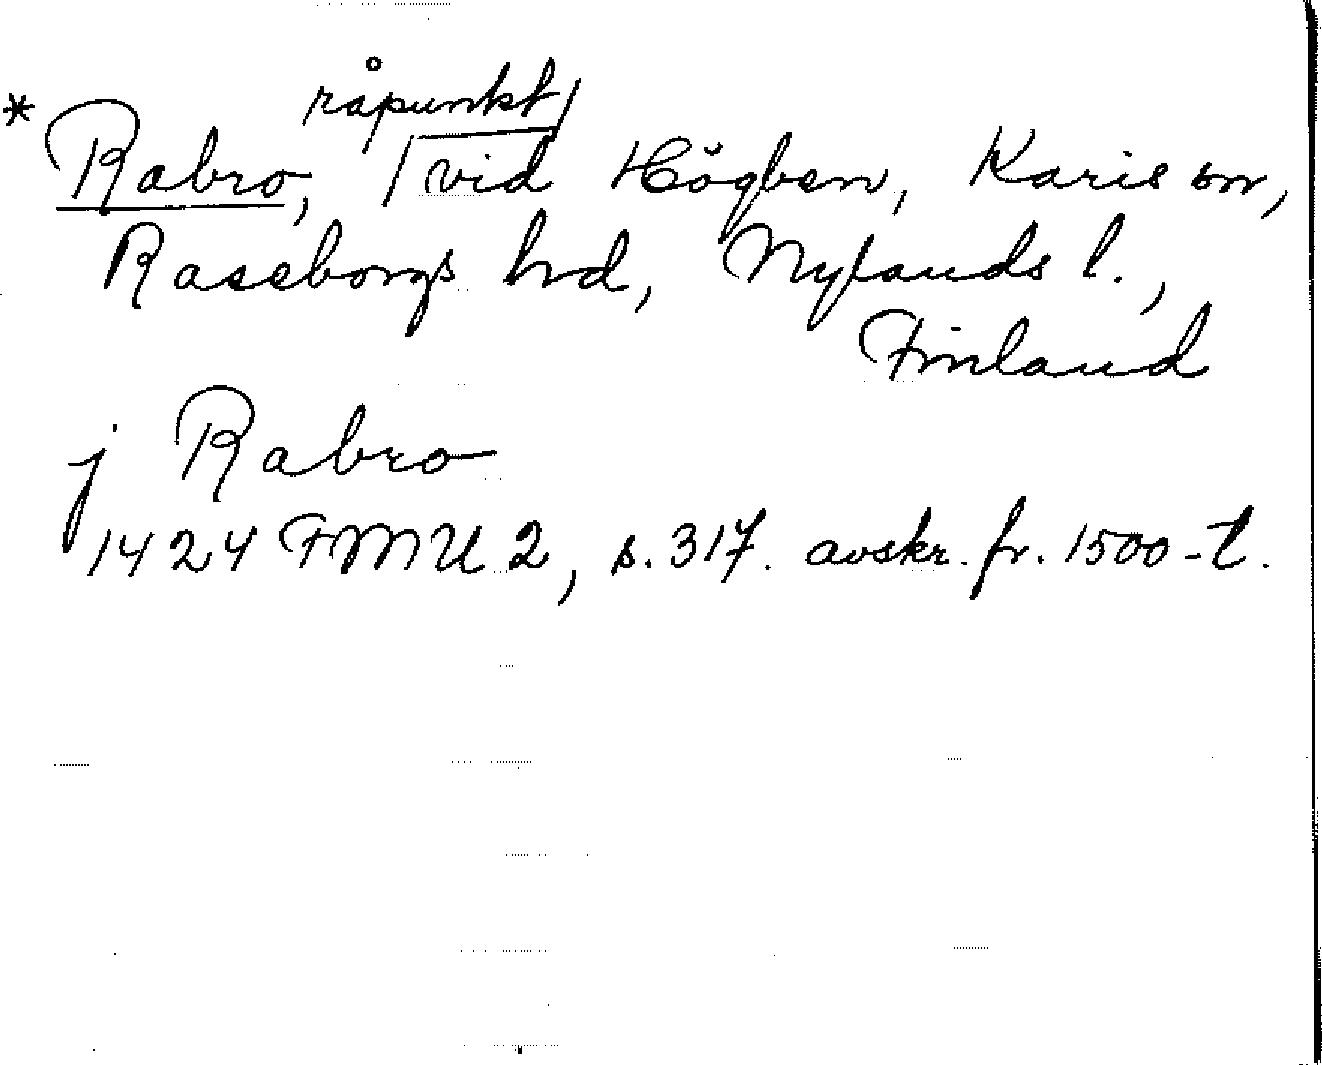 råpunkt
* Rabro, vid Högben, Karis sn,
Raseborgs hd, Nylands l.,
Finland
j Rabro
1424 FMU 2, s. 317. avskr. fr. 1500-t.